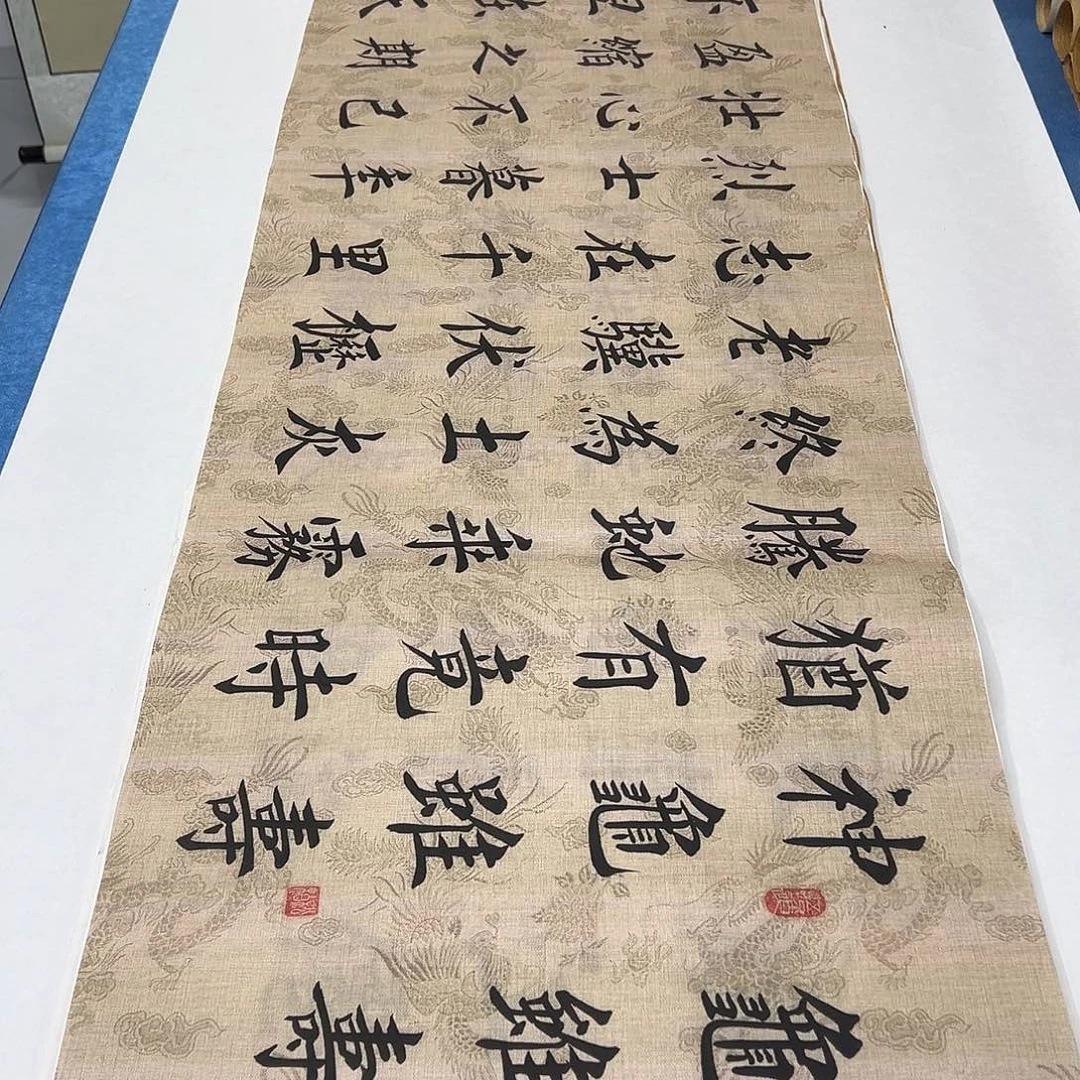 龜雖壽
神龜雖壽
猶有竟時
騰蛇乘霧
終為土灰
老驥伏櫪
志在千里
烈士暮年
壯心不已
盈縮之期